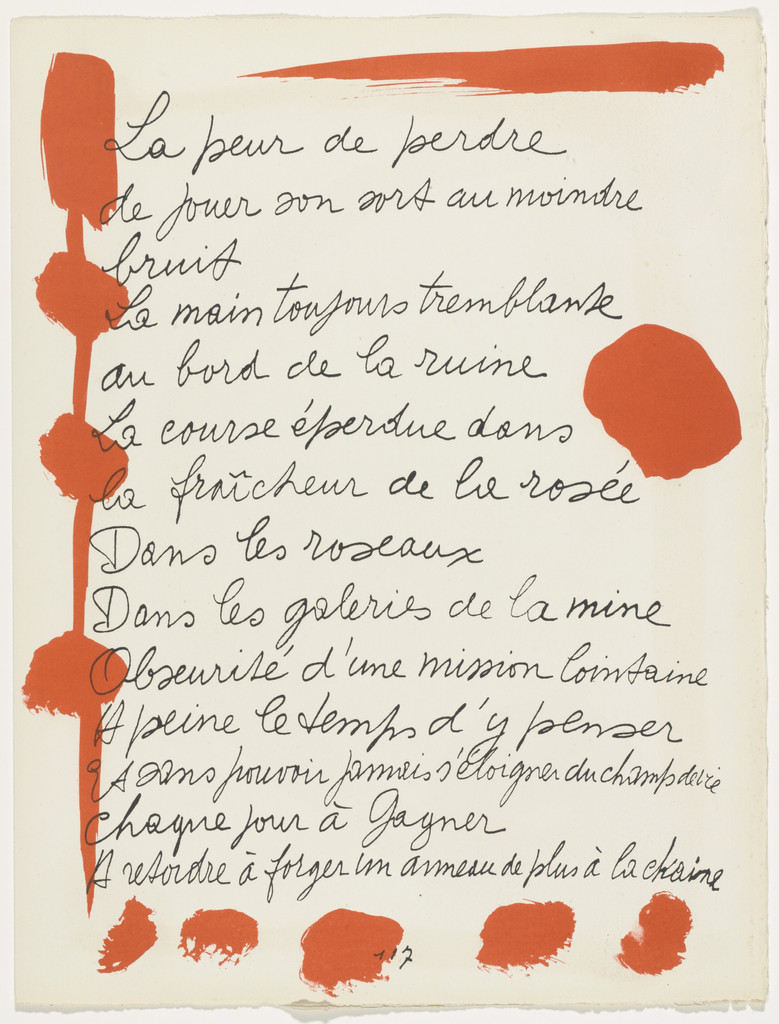 La peur de perdre
de jouer son sort au moindre
bruit
La main toujours tremblante
au bord de la ruine
La course éperdue dans
la fraîcheur de la rosée
Dans les roseaux
Dans les galeries de la mine
Obscurité d'une mission lointaine
A peine le temps d'y penser
Et sans pouvoir jamais s'éloigner du champ de vie
chaque jour à Gagner
A retordre à forger un anneau de plus à la chaine
117